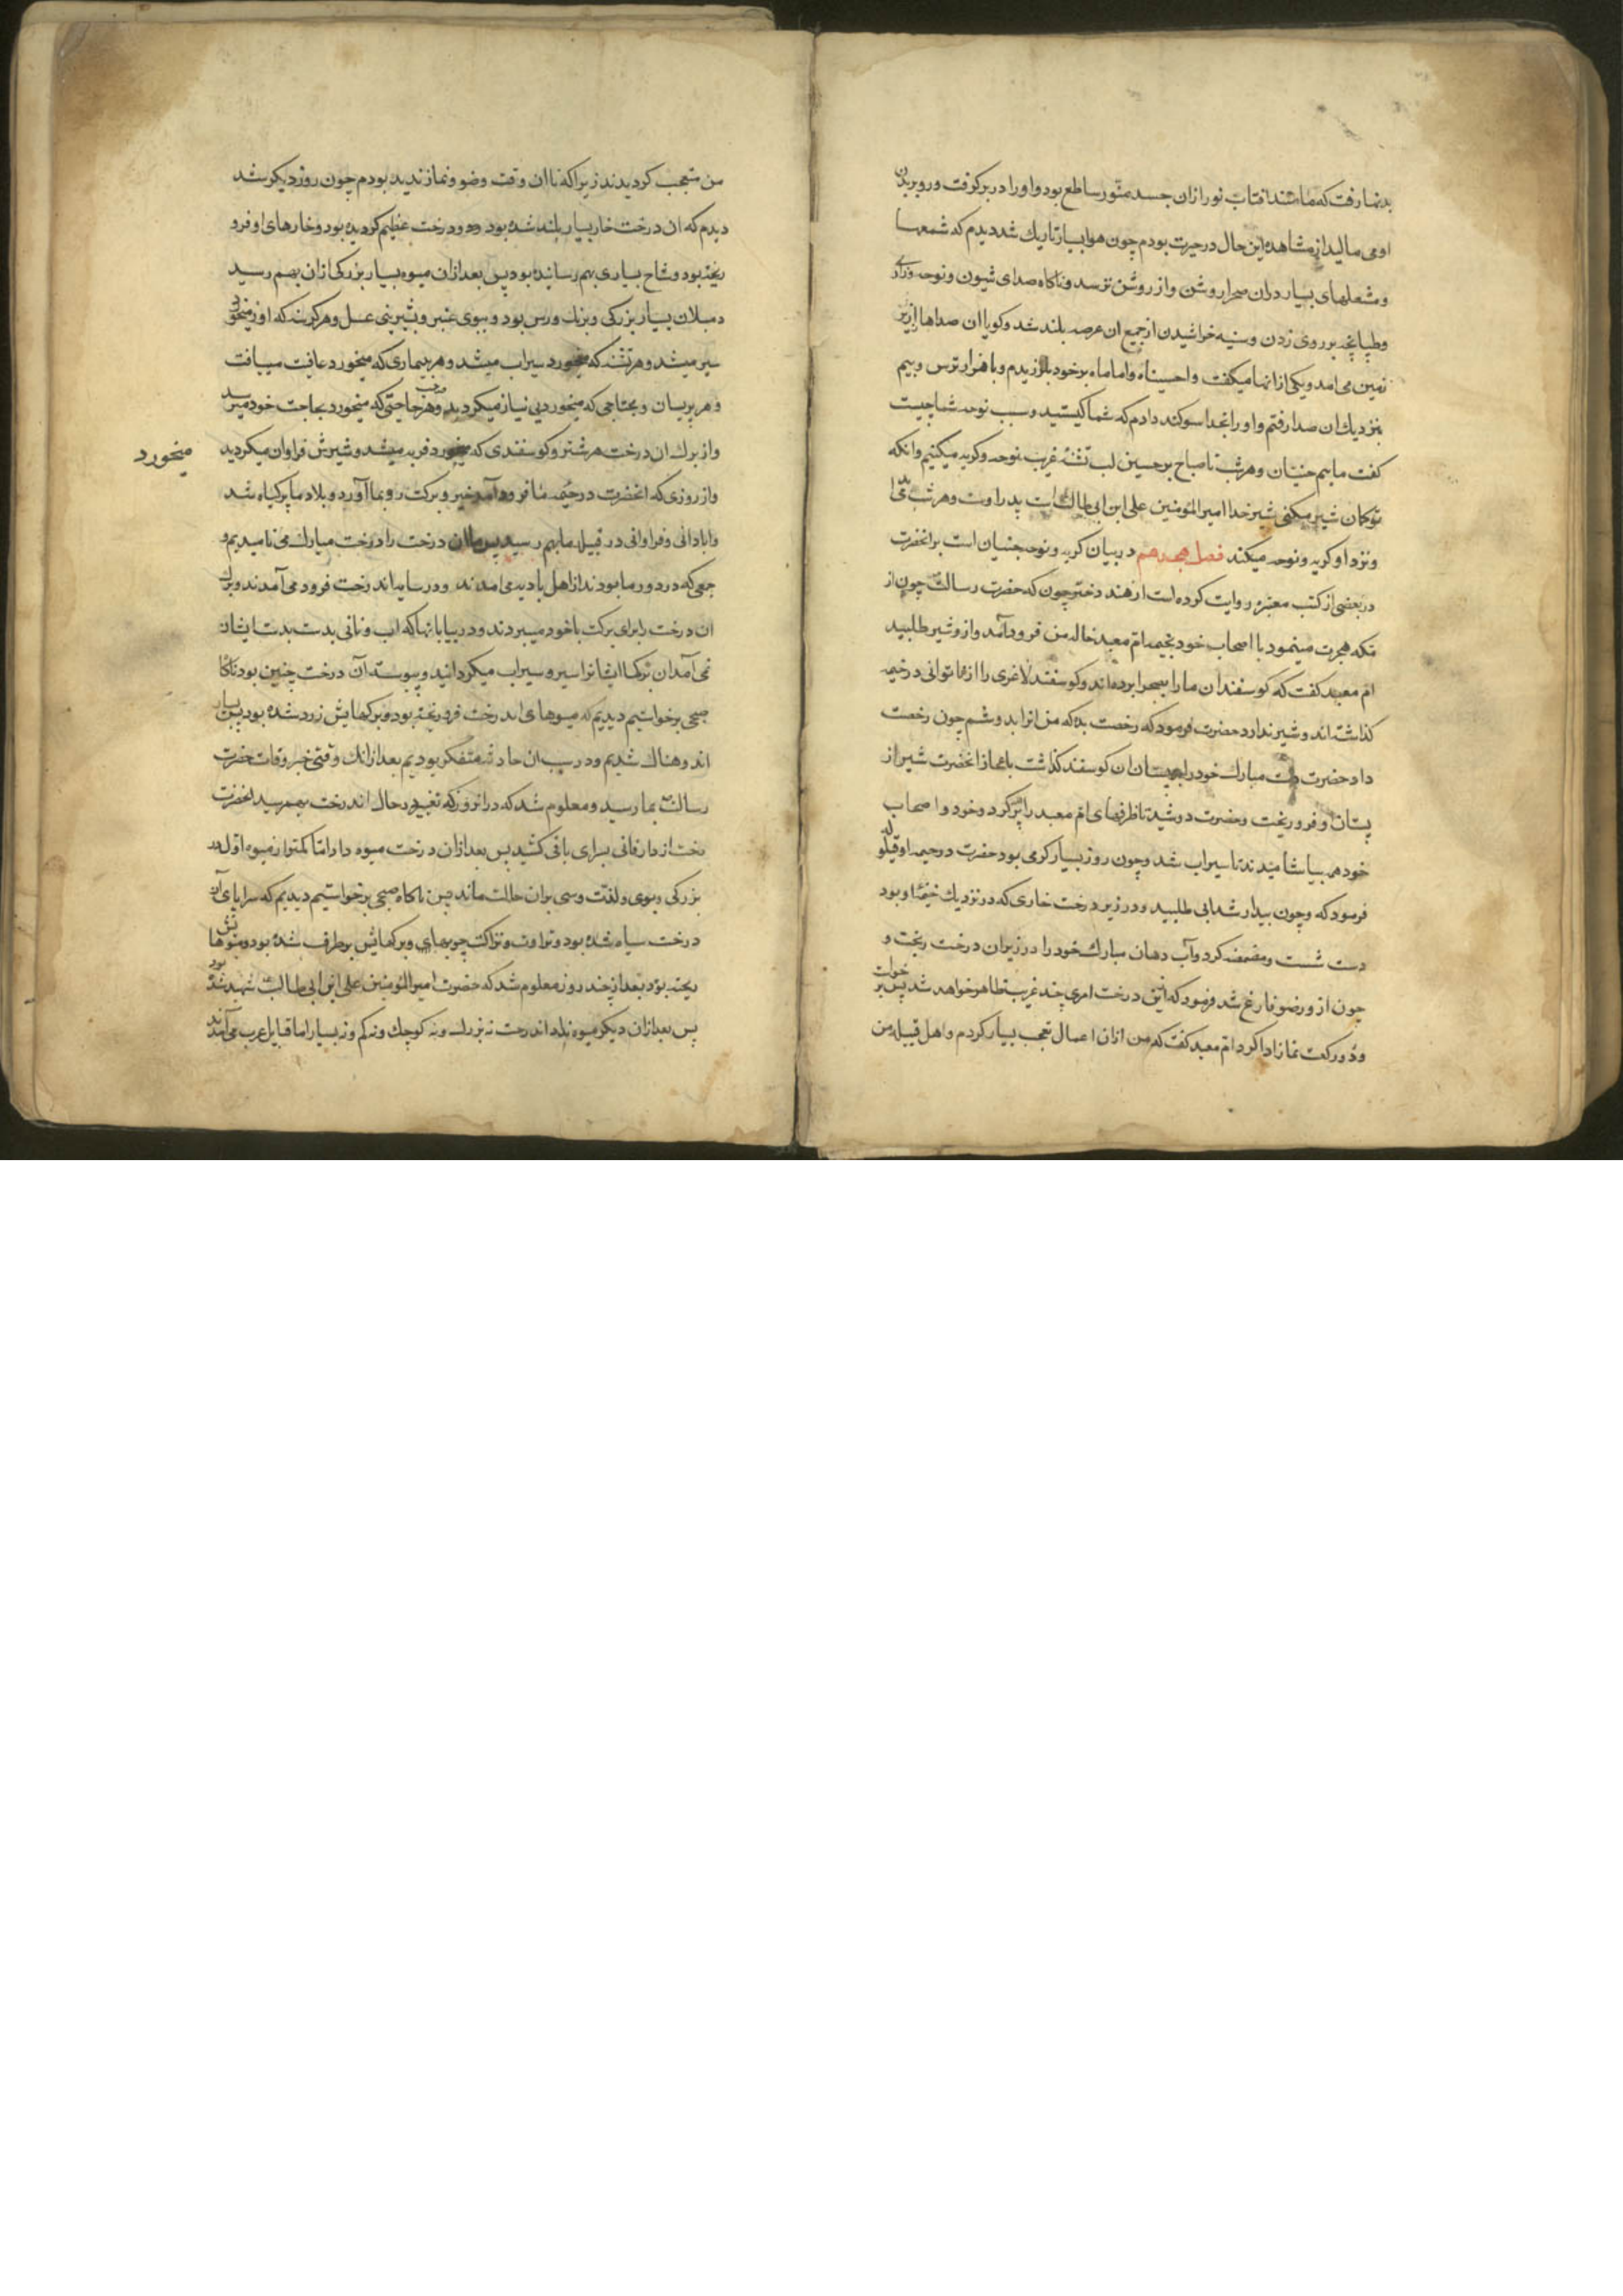 بدنها رفت که مانند افتاب نور ازان جسد منور ساطع بود و او را در بر کرفت و رو بر بدن
او می مالید از مشاهده این حال در حیرت بودم چون هوا بسیار تاریک شد دیدم که شمعها
و مشعلهای بسیار دران صحرا روشن و ناکاه صدای شیون و نوحه و زاری
و طپانچه بر روی زدن و سینه خراشیدن از جمیع ان عرصه بلند شد و کویا ان صداها از زیر
زمین می امد و یکی از انها میکفت واحسیناه واماماه بر خود بلرزیدم و با هزار ترس و بیم
بنزدیک ان صدا رفتم و او را بخدا سوکند دادم که شما کیستید و سبب نوحه شما چیست
کفت ماییم جنیان و هر شب تا صباح بر حسین لب تشنه غریب نوحه و کریه میکنیم و انکه
تو کمان شیر میکنی شیر خدا امیر المؤمنین علی ابن ابی طالب است پدر اوست و هر شب می اید
و نزد او کریه و نوحه میکند فصل هجدهم در بیان کریه و نوحه جنیان است بر انحضرت
در بعضی از کتب معتبره روایت کرده است از هند دختر جون که حضرت رسالت چون از
مکه هجرت مینمود با اصحاب خود بخیمه ام معبد خاله من فرود آمد و ازو شیر طلبید
ام معبد کفت که کوسفندان ما را بصحرا برده اند و کوسفند لاغری را از ناتوانی در خیمه
کذاشته اند و شیر ندارد حضرت فرمود که رخصت بده که من انرا بدوشم چون رخصت
داد حضرت دست مبارک خود را بپستان ان کوسفند کذاشت باعجاز انحضرت شیر از
پستان او فرو ریخت و حضرت دوشید تا ظرفهای ام معبد را پر کرد و خود و اصحاب
خود همه بیاشامیدند تا سیراب شد و چون روز بسیار کرمی بود حضرت در خیمه او قیلوله
فرمود که و چون بیدار شد ابی طلبید و در زیر درخت خاری که در نزدیک خیمه او بود
دست شست و مضمضه کرد و آب دهان مبارک خود را در زیر ان درخت ریخت و
چون از وضو فارغ شد فرمود که ازین درخت امری چند غریب ظاهر خواهد شد پس برخواست
و دو رکعت نماز ادا کرد ام معبد کفت که من ازان اعمال تعجب بسیار کردم و اهل قبیله من
من متعجب کردیدند زیرا که تا ان وقت وضو و نماز ندیده بودم چون روز دیکر شد
دیدم که ان درخت خار بسیار بلند شده بود و درخت عظیم کردیده بود و خارهای او فرو
ریخته بود و شاخ بسیاری بهم رسانده بود پس بعد ازان میوه بسیار بزرکی ازان بهم رسید
دنبلان بسیار بزرکی و برنک ورس بود و ببوی عنبر و شیرینی عسل و هر کرسنه که او میخورد
سیر میشد و هر تشنه که میخورد سیراب میشد و هر بیماری که میخورد عافیت میافت
و هر پریسان و محتاجی که میخورد بی نیاز میکردید و هر صاحب حاجتی که میخورد بحاجت خود میرسد
و از برک ان درخت هر شتر و کوسفندی که میخورد فربه میشد و شیرش فراوان میکردید
میخورد
و از روزی که انحضرت در خیمه ما فرود آمد خیر و برکت رو بما آورد و بلاد ما پر کیاه شد
و ابادانی و فراوانی در قبیله ما بهم رسید پس ما ان درخت را درخت مبارک می نامیدیم و
جمعی که در دور ما بودند از اهل بادیه می امدند و در سایه اندرخت فرود می آمدند و برک
ان درخت را برای برکت با خود میبردند و در بیابانها که اب و نانی بدست بدست ایشان
نمی آمد ان برکها ایشانرا سیر و سیراب میکردانید و پیوسته آن درخت چنین بود ناکاه
صبحی برخواستیم دیدیم که میوهای اندرخت فرو ریخته بود و برکهایش زرد شده بود پس بسیار
اندوهناک شدیم و در سبب ان حادثه متفکر بودیم بعد ازانک وقتی خبر وفات حضرت
رسالت بما رسید و معلوم شد که در انروز که تغییر در حال اندرخت بهمرسید انحضرت
رخت از دار فانی بسرای باقی کشید پس بعد ازان درخت میوه داد اما کمتر از میوه اول بود
بزرکی و بوی و لذت و سی بران حالت ماند پس ناکاه صبحی برخواستیم دیدیم که سراپای آن
درخت سیاه شده بود و تراوت و نزاکت چوبهای و برکهایش برطرف شده بود و میوه هایش
ریخته بود بعد از چند روز معلوم شد که حضرت امیر المؤمنین علی ابن ابی طالب شهید شده بود
پس بعد ازان دیکر میوه نداد اندرخت نه بزرک و نه کوچک و نه کم و نه بسیار اما قبایل عرب می آمدند